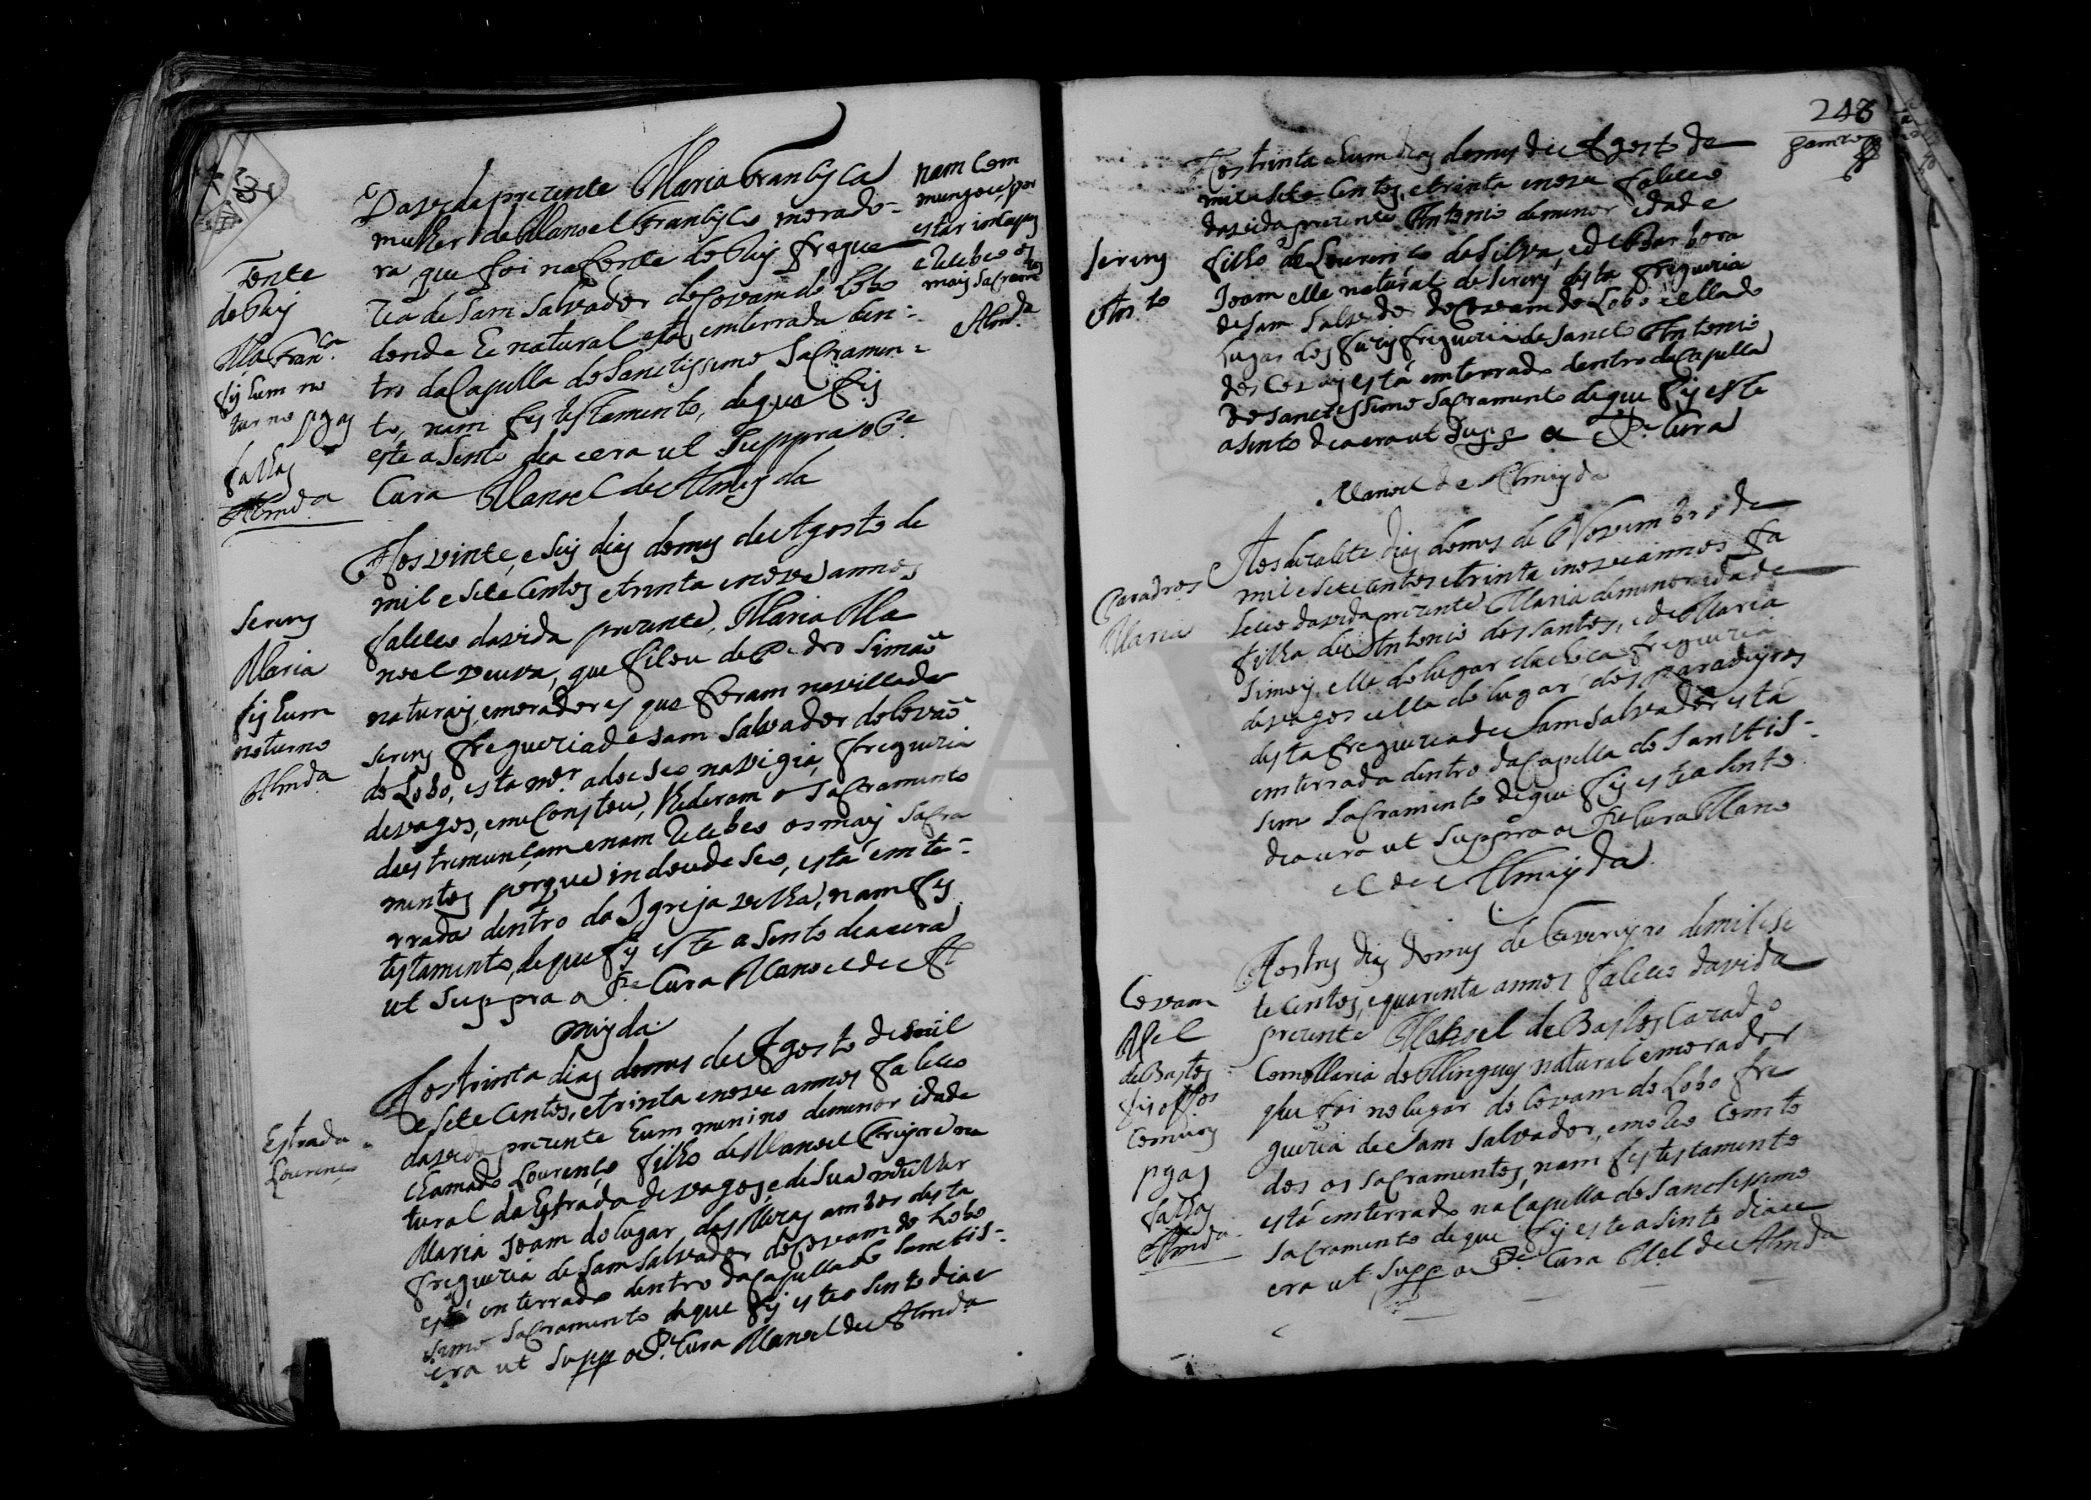 Da vida prezente Maria Francisca
mulher de Manoel Francisco morado-
ra que foi na fonte do Rey fregue
zia de Sam Salvador de Covam do Lobo
donde he natural está emterrada den-
tro da Capella do Sanctissimo Sacramen-
to, nam fez testamento, de que fiz
este asento dia e era ut suppra o P.e
Cura Manoel de Almeyda
nam com
mungou por
estar
e Recebeo os
mais Sacram.tos
Almd.a
Fonte
do Rey
M.a Fran.ca
fiz hum no
turno pgas
falhas
Almd.a
Aos vinte, e seis dias do mes de Agosto de
mil e sete centos e trinta e nove annos
faleceo da vida prezente, Maria Ma
noel veuva, que ficou de Pedro Simão
naturais, e moradores que foram no villar de
Serens freguezia de Sam Salvador de Covão
do Lobo, esta m.er adoeseo na vigia, freguezia
de vagos, e me constou, lhe deram o Sacramento
da estremunçam e nam Recebeo os mais Sacra
mentos porque indoudeseo, está emte-
rrada dentro da Igreja velha, nam fez
testamento, de que fiz este asento dia e era
ut suppra o P.e Cura Manoel de Al
meyda
Serens
Maria
fiz hum
noturno
Almd.a
Aos trinta dias do mes de Agosto de mil
e sete centos, e trinta e nove annos faleceo
da vida prezente hum menino de menor idade
chamado Lourenço filho de Manoel Freyre na
tural da Estrada de vagos, e de sua mulher
Maria Joam do lugar das Mesas ambos desta
freguezia de Sam Salvador de Covam do Lobo
está enterrado dentro da Capella do Sanctis-
simo Sacramento de que fiz este asento dia e
era ut supp o P.e Cura Manoel de Almd.a
Estrada
Lourenço
248
Aos trinta e hum dias do mes de Agosto de
mil e sete centos, e trinta e nove faleceo
da vida prezente Antonio de menor idade
filho de Lourenço da Silva, e de Barbora
Joam elle natural de Serens desta freguezia
de Sam Salvador de Covam do Lobo e ella do
lugar dos freguezia de Sancto Antonio
dos está emterrado dentro da Capella
do Sanctissimo Sacramento de que fiz este
asento dia e era ut supp o P.e Cura
Manoel de Almeyda
Serens
Ant.o
Aos dezasete dias do mes de Novembro de
mil e sete centos e trinta e nove annos fa
leceo da vida prezente Maria de menor idade
filha de Antonio dos Santos, e de Maria
Simois elle do lugar freguezia
de vagos e ella do lugar dos paradeyros
desta freguezia de Sam Salvador está
emterrada dentro da Capella do Sanctis-
simo Sacramento de que fiz este asento
dia e era ut suppra o P.e Cura Mano
el de Almeyda
Paradros
Maria
Aos tres dias do mes de Fevereyro de mil e se
te centos, e quarenta annos faleceo da vida
prezente Manoel de Bastos cazado
com Maria de natural e morador
que foi no lugar do Covam do Lobo fre
guezia de Sam Salvador, e moreo com to
dos os Sacramentos, nam fez testamento
está emterrado na Capella do Sanctissimo
Sacramento de que fiz este asento dia e
era ut supp o P.e Cura M.el de Almd.a
Covam
M.el
de Bastos
fiz off.os
pgas
falhas
Almd.a